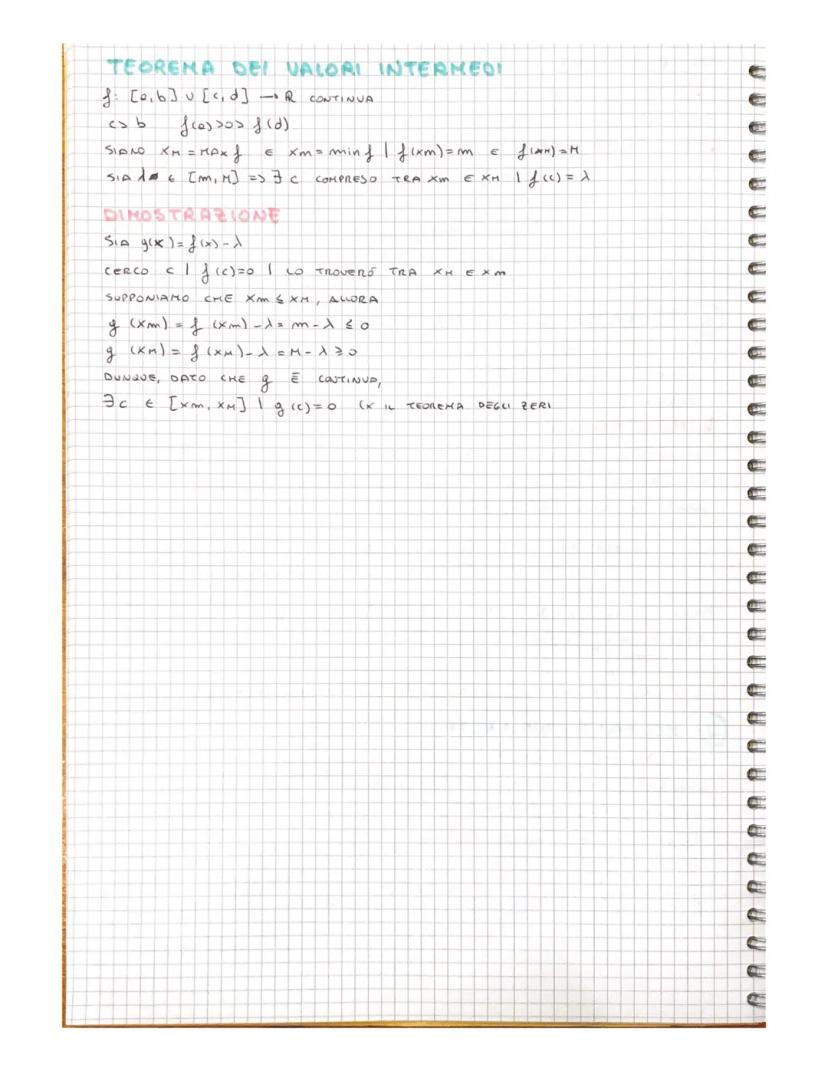 TEOREMA DEI VALORI INTERMEDI
f: [a,b] ∪ [c,d] → R CONTINUA
c > b f(a)>0> f(d)
SIANO XM = MAX f E Xm = min f | f(xm)=m E f(xM)=M
SIA λ ∈ [m,M] => ∃ c COMPRESO TRA Xm E XM | f(c) = λ
DIMOSTRAZIONE
SIA g(x) = f(x) - λ
CERCO c | f(c)=0 | LO TROVERÓ TRA XM E Xm
SUPPONIAMO CHE Xm ≤ XM, ALLORA
g (Xm) = f (xm) - λ = m - λ ≤ 0
g (XM) = f (xM) - λ = M - λ ≥ 0
DUNQUE, DATO CHE g È CONTINUA,
∃c ∈ [xm, xM] | g(c) = 0 (X IL TEOREMA DEGLI ZERI